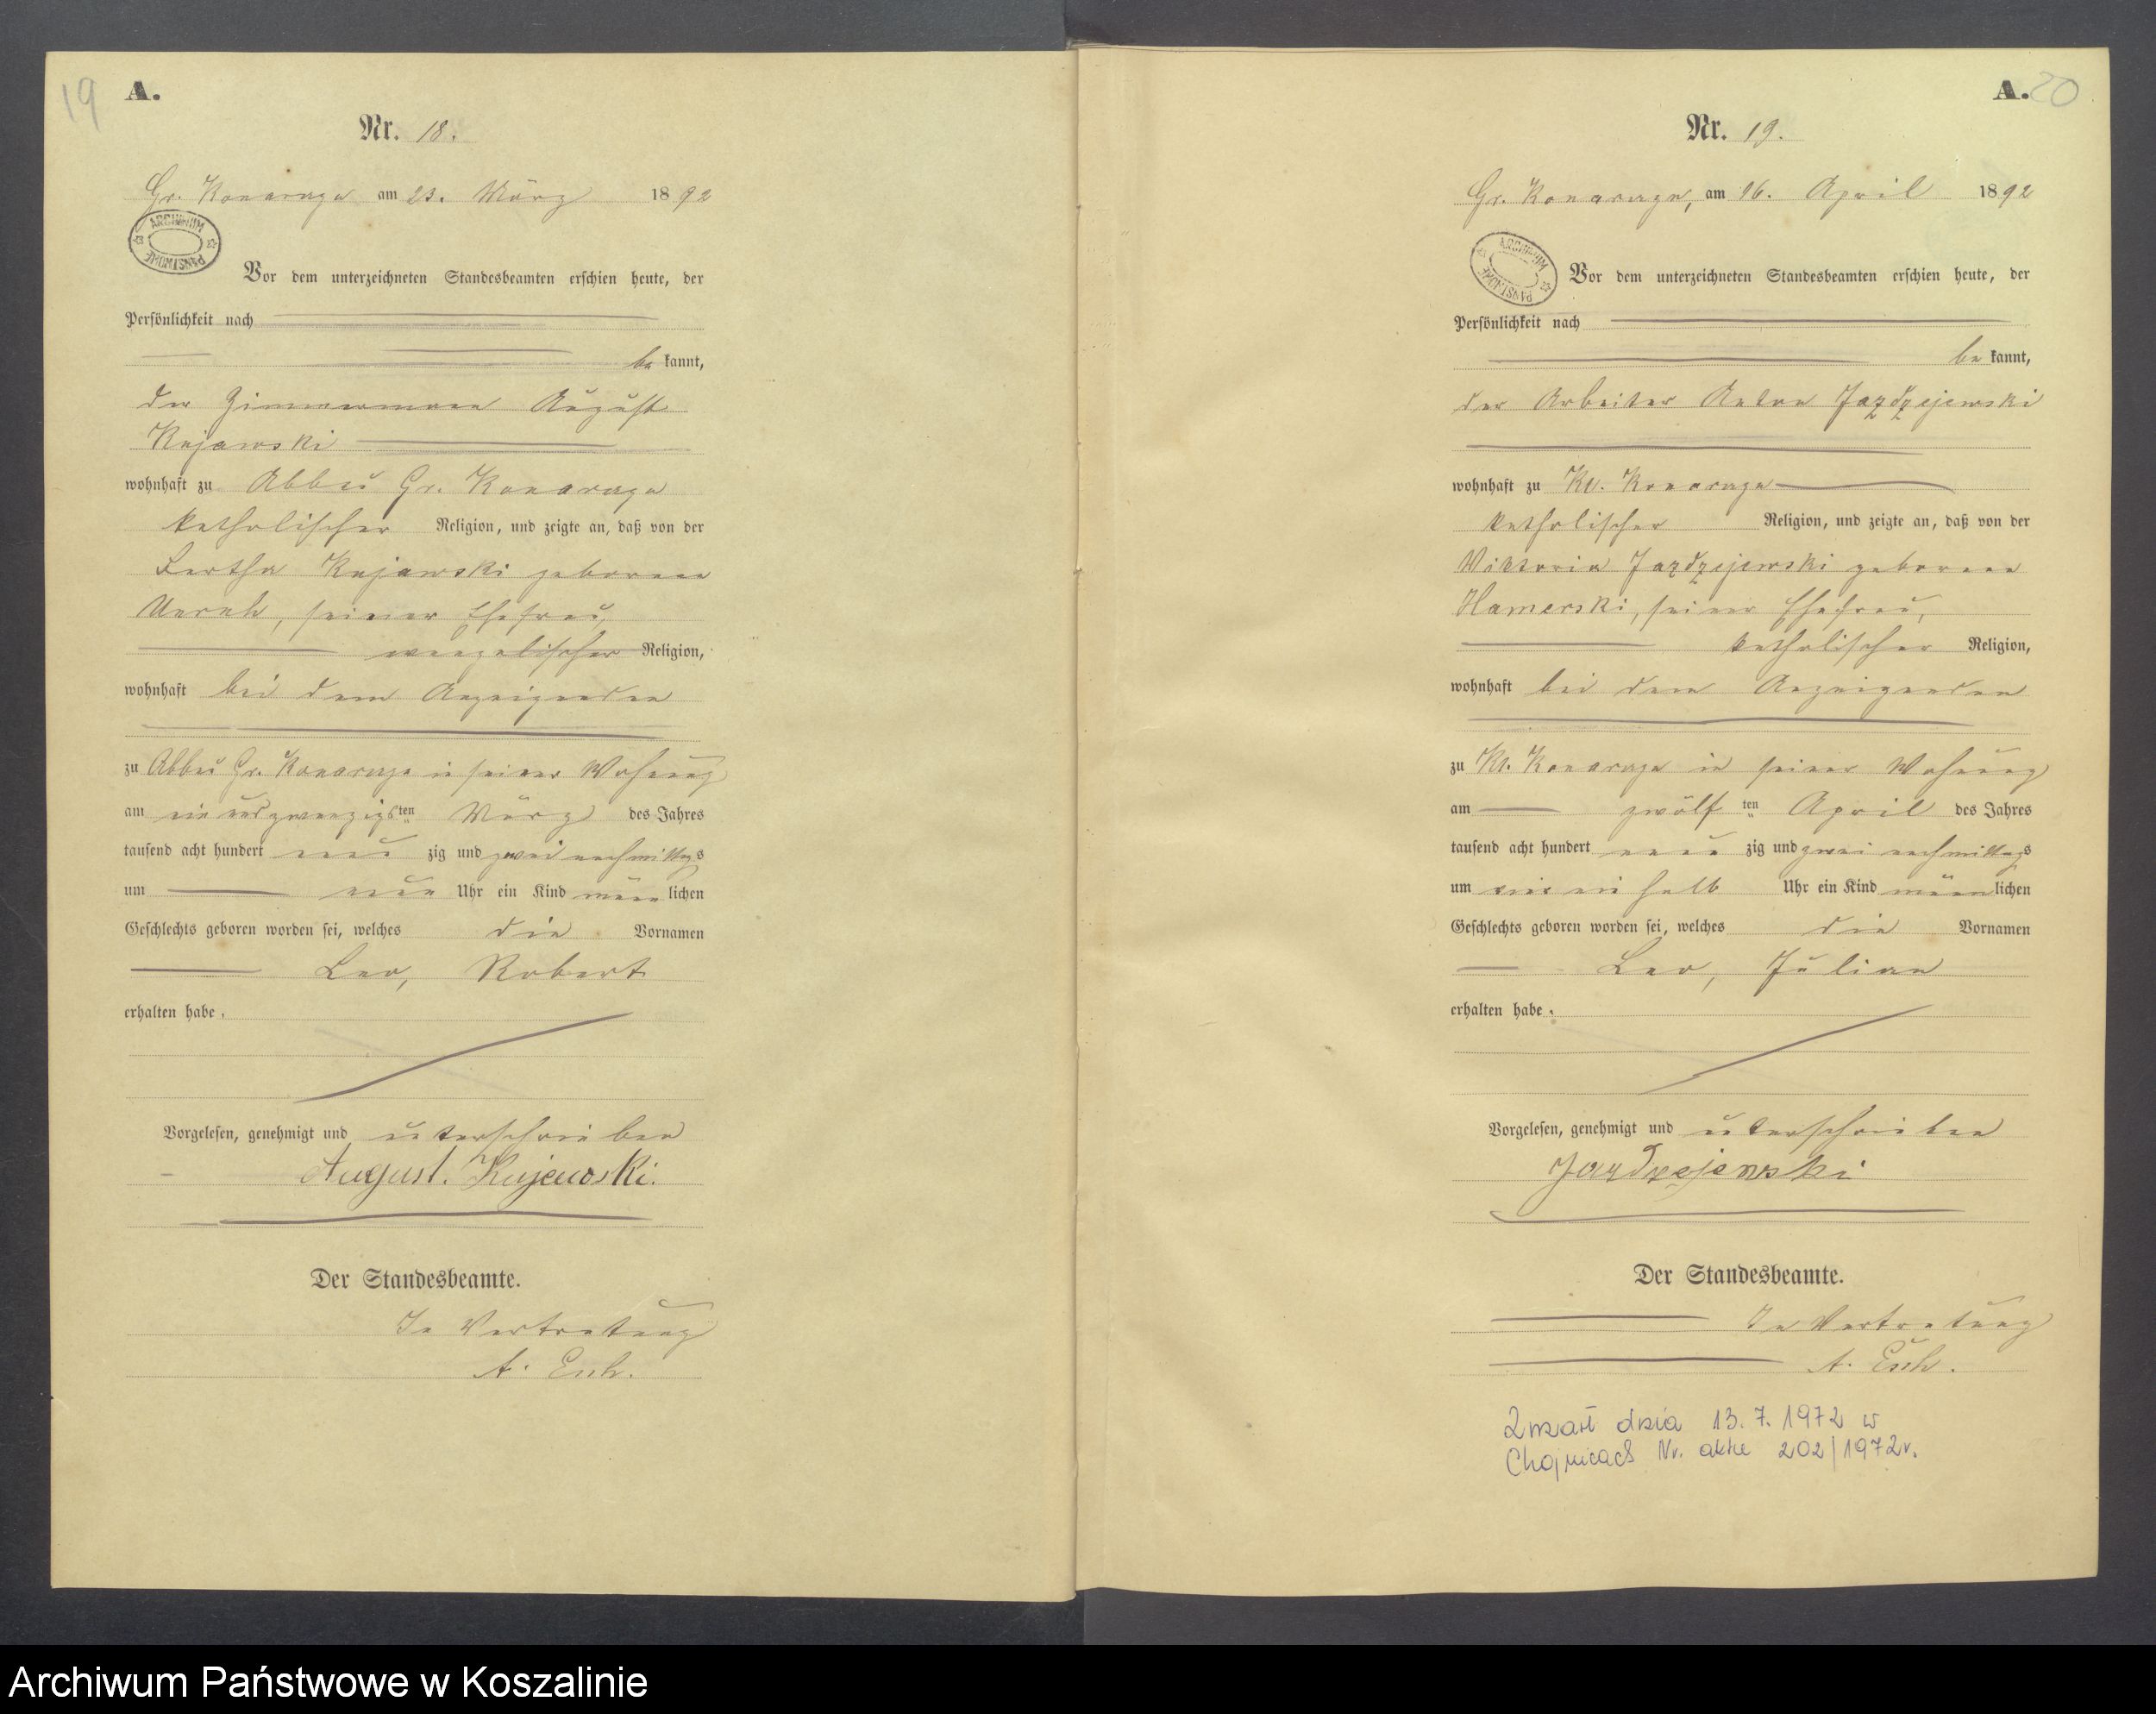 19
A.
Nr. 18.
Gr. Konarzyn am 23. März 1892
ARCHIWUM PAŃSTWOWE
Vor dem unterzeichneten Standesbeamten erschien heute, der
Persönlichkeit nach
be kannt,
der Zimmermann August
Kujawski
wohnhaft zu Abbau Gr. Konarzyn
katholischer Religion, und zeigte an, daß von der
Bertha Kujawski geborene
Unruh, seiner Ehefrau,
evangelischer Religion,
wohnhaft bei dem Anzeigenden
zu Abbau Gr. Konarzyn in seiner Wohnung
am ein und zwanzigsten März des Jahres
tausend acht hundert neun zig und zwei nachmittags
um neun Uhr ein Kind männ lichen
Geschlechts geboren worden sei, welches die Vornamen
Leo, Robert
erhalten habe.
Vorgelesen, genehmigt und unterschrieben
August. Kujawski.
Der Standesbeamte.
In Vertretung
A. Esch.
A. 20
Nr. 19.
Gr. Konarzyn, am 16. April 1892
ARCHIWUM PAŃSTWOWE
Vor dem unterzeichneten Standesbeamten erschien heute, der
Persönlichkeit nach
be kannt,
der Arbeiter Anton Jazdzejewski
wohnhaft zu Kl. Konarzyn
katholischer Religion, und zeigte an, daß von der
Viktoria Jazdzejewski geborene
Hamerski, seiner Ehefrau,
katholischer Religion,
wohnhaft bei dem Anzeigenden
zu Kl. Konarzyn in seiner Wohnung
am zwölf ten April des Jahres
tausend acht hundert neun zig und zwei nachmittags
um ein halb Uhr ein Kind männ lichen
Geschlechts geboren worden sei, welches die Vornamen
Leo, Julian
erhalten habe.
Vorgelesen, genehmigt und unterschrieben
Jazdzejewski
Der Standesbeamte.
In Vertretung
A. Esch.
Zmarł dnia 13. 7. 1972 w
Chojnicach Nr. aktu 202/1972r.
Archiwum Państwowe w Koszalinie